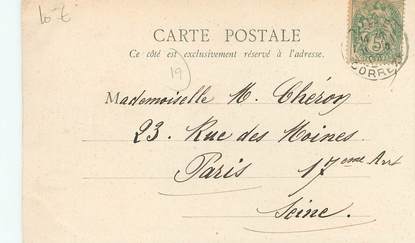 10-Z
CARTE POSTALE
Ce côté est exclusivement réservé à l'adresse.
19
Mademoiselle M. Chéron
23. Rue des Moines.
Paris 17eme Arrt
Seine.
5
CORRÈZE